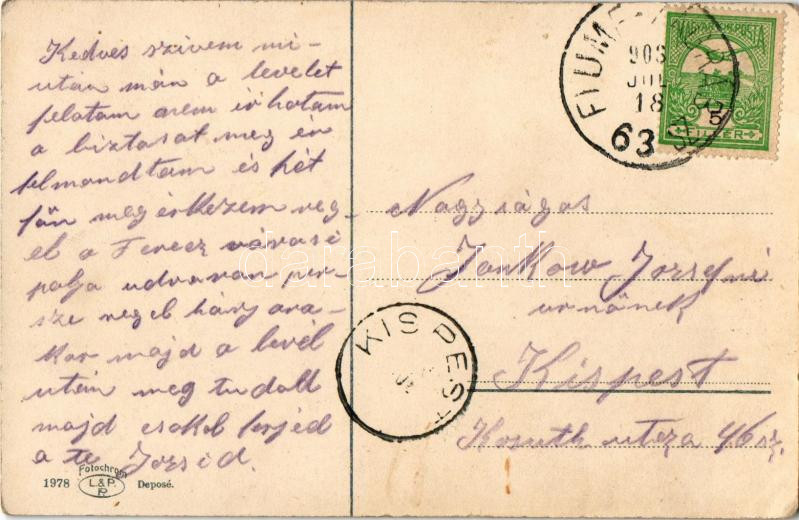 Kedves szivem mi-
után mán a levelet
felatam arem irhatam
a biztasat meg én
felmandtam és hét
fün megérkezem reg-
el a Ferecz várasi
palja udvaran per-
sze regel hánj ara-
kor majd a levél
után meg tudall
majd csakol ferjéd
a te Jozsid.
1978
Fotochrom
L&P.
P.
Deposé.
FIUME
903
JUL
18
63
MAGYAR KIR. POSTA
5
FILLER
Nagyságos
Jankow Jozsefné
urnőnek
KISPEST
Kispest
Kosuth utcza 46 sz.
darabanth